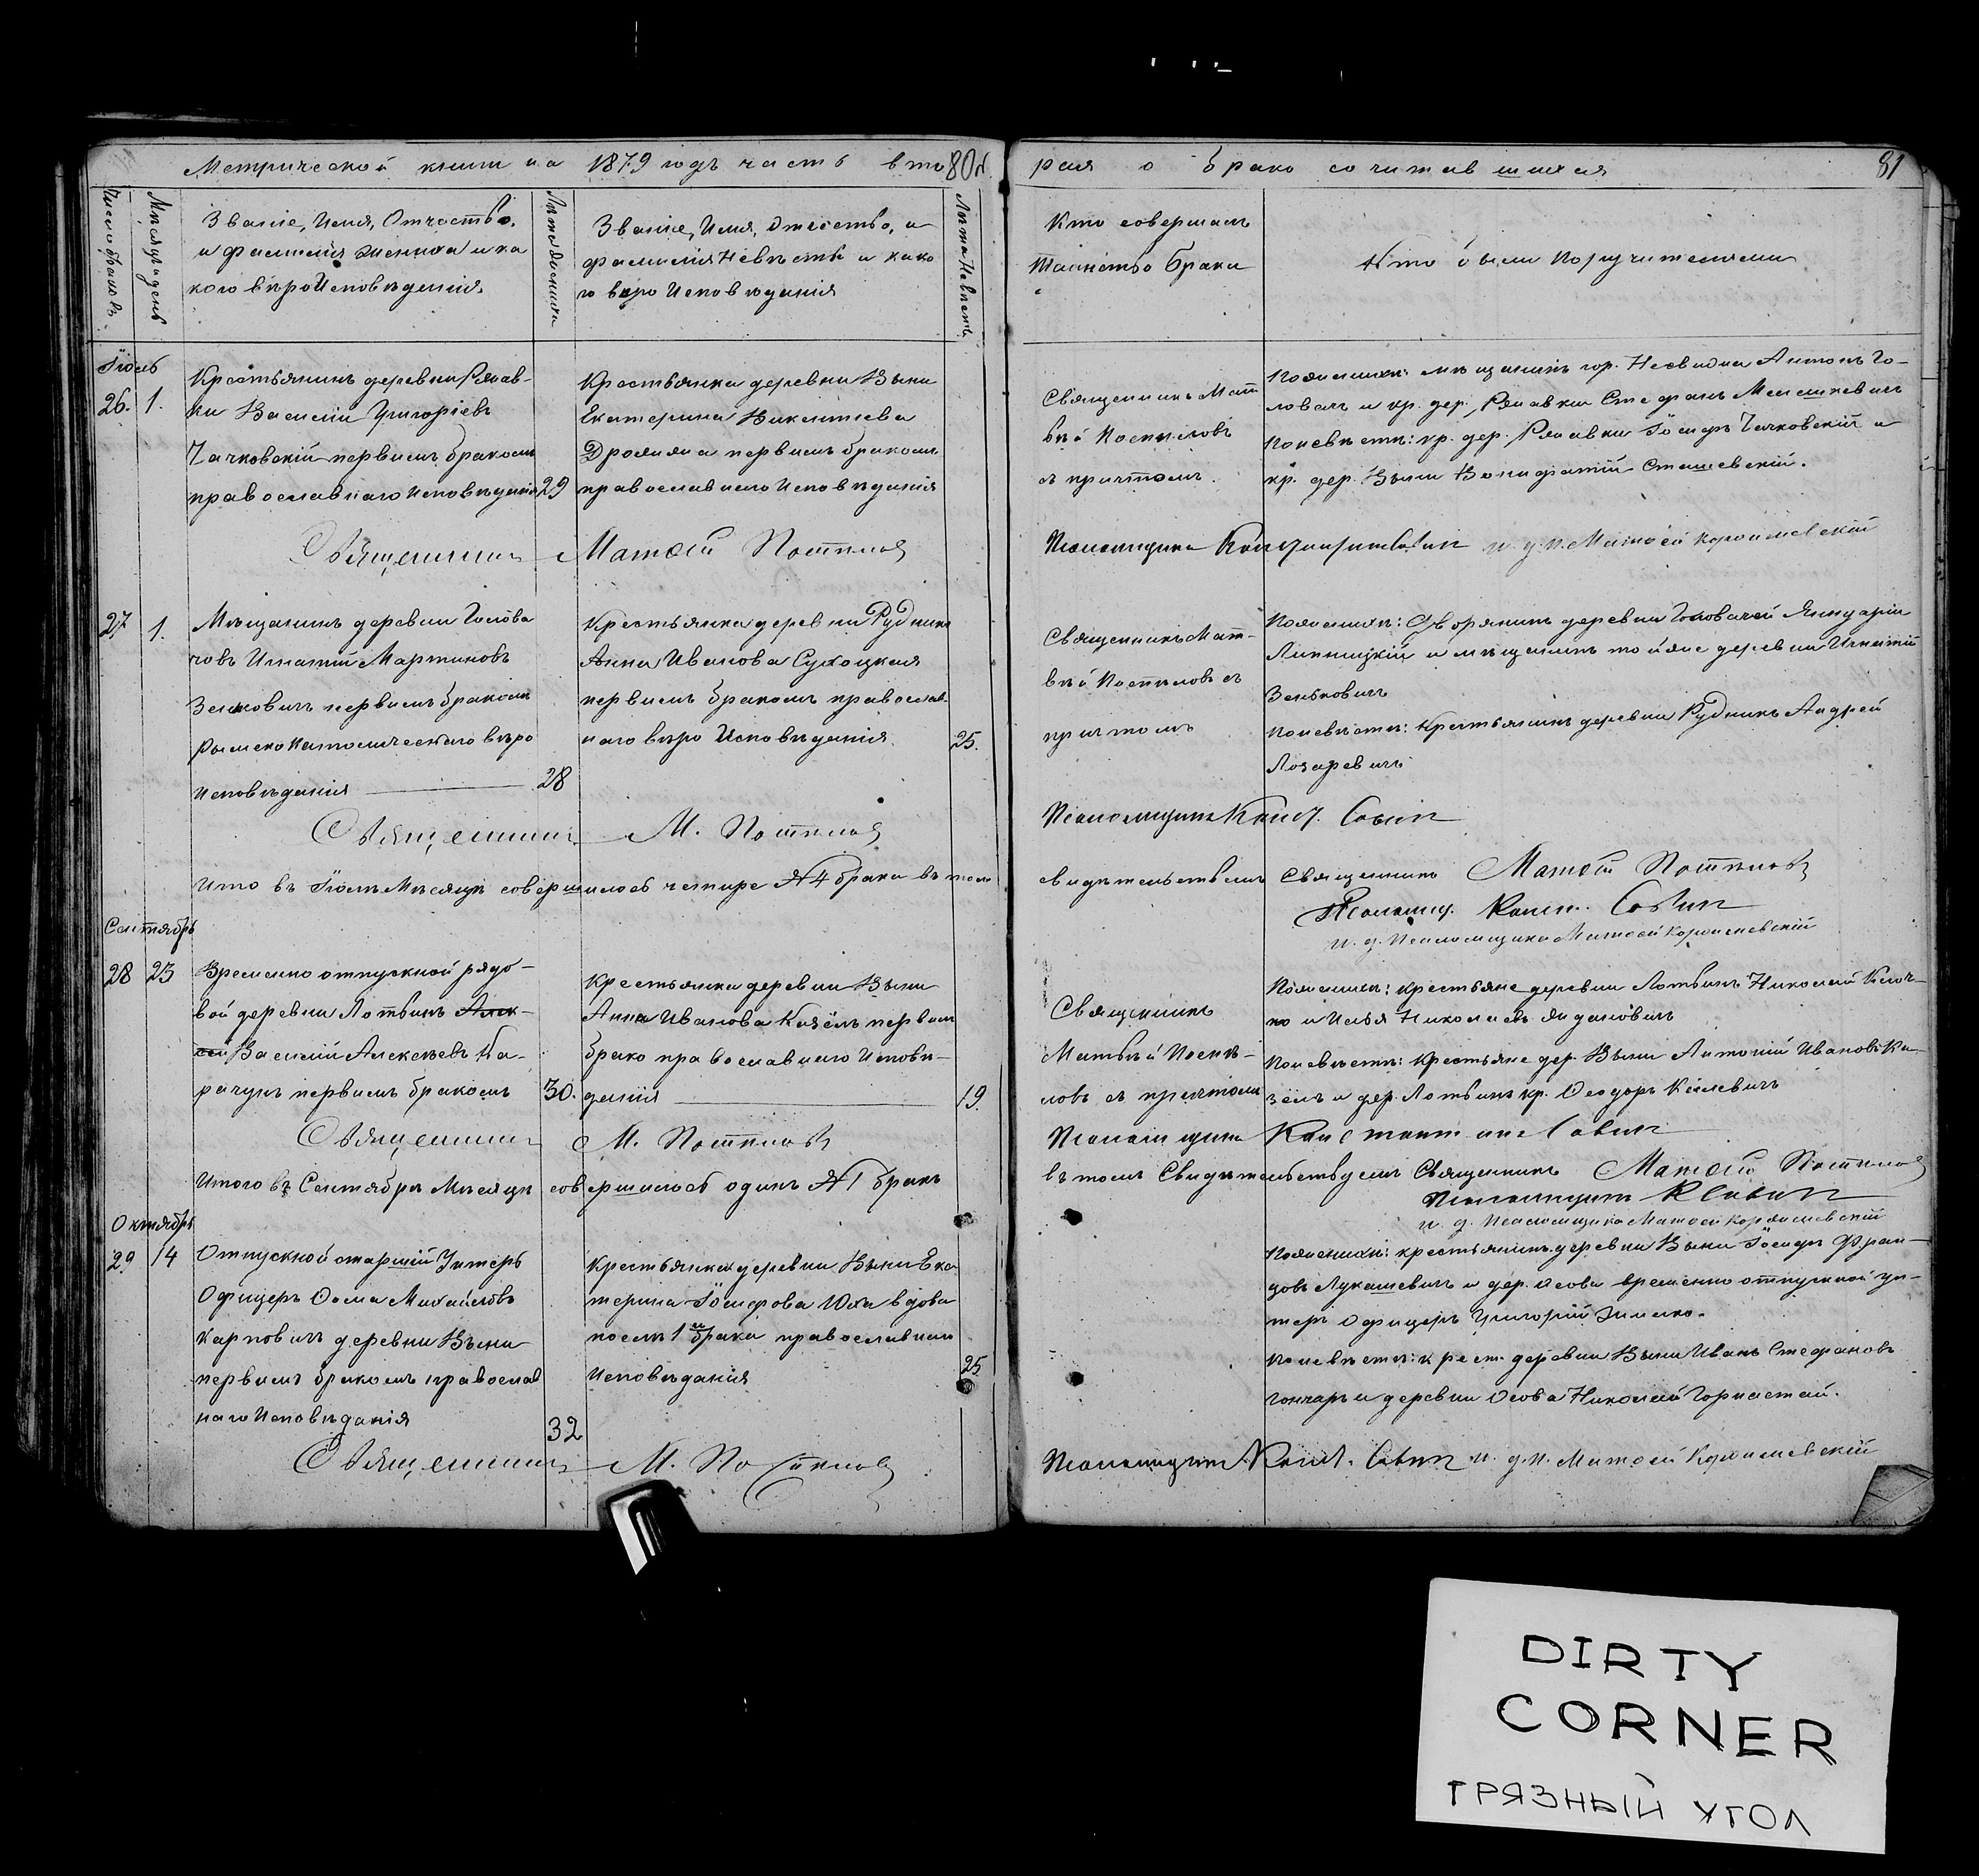 Метрической книги на 1879 годъ часть вто
80
рая о бракосочитавшихся
81
Число браковъ
Мѣсяцъ и день
Званіе, Имя, Отчество,
и фамилія жениха и ка
кого вѣроИсповѣданія
Лѣта жениха
Званіе, Имя, Отчество, и
фамилія Невѣсты и како
го вѣро Исповѣданія
Лѣта Невѣсты
Кто совершалъ
Таинство брака
Кто были Поручителями
Іюль
26. 1.
Крестьянинъ деревни Рясав-
ки Василій Григоріевъ
Тачковскій первымъ бракомъ
православнаго Исповѣданія
29
Крестьянка деревни Выни
Екатерина Викентіева
первымъ бракомъ
православнаго Исповѣданія
Священникъ Мат
вѣй Поспѣловъ
съ причтомъ.
Поженихѣ: мѣщанинъ гор. Несвижа Антонъ Го-
ловачъ и кр. дер. Рясавки Стефанъ Мелешкевичъ
Поневѣстѣ: кр. дер. Рясавки Іосифъ Тачковскій и
кр. дер. Выни Вонифатій Сташевскій.
Священникъ Матѳей Поспѣловъ
Псаломщикъ Константинъ Савичъ и. д. п. Матѳей
27 1.
Мѣщанинъ деревни Голова
човъ Игнатій Мартиновъ
Зеньковичъ первымъ бракомъ
Римскокатолическаго вѣро
исповѣданія
28
Крестьянка деревни Рудникъ
Анна Иванова Сухоцкая
первымъ бракомъ православ-
наго вѣро Исповѣданія
25.
Священникъ Мат-
вѣй Поспѣловъ съ
причтомъ
Поженихѣ: Дворянинъ деревни Головачей Януарій
Липницкій и мѣщанинъ той же деревни Игнатій
Зеньковичъ
Поневѣстѣ: Крестьянинъ деревни Рудникъ Андрей
Лазаревичъ
Священникъ М. Поспѣловъ
Псаломщикъ Конст. Савичъ
Что въ Іюлѣ Мѣсяцѣ совершилось четыре № 4 брака въ томъ
свидѣтельствуемъ Священникъ Матѳей Поспѣловъ
Псаломщ. Конст. Савичъ
и. д. Псаломщика Матѳей
Сентябрь
28 23
Временно отпускной рядо-
вой деревни Лотвинъ Алек-
сей Василій Алексѣевъ Ка-
рачунъ первымъ бракомъ
30.
Крестьянка деревни Выни
Анна Иванова Казёлъ первым
брако православнаго Исповѣ-
данія
19.
Священникъ
Матвѣй Поспѣ-
ловъ съ причтомъ
Поженихѣ: крестьяне деревни Лотвинъ Николай Клоч-
ко и Илья Николаевъ
Поневѣстѣ: Крестьяне дер. Выни Антоній Ивановъ Ка
зёлъ и дер. Лотвинъ кр. Ѳеодоръ
Священникъ М. Поспѣловъ
Псаломщикъ Константинъ Савичъ
Итого въ Сентябрѣ Мѣсяцѣ совершилось одинъ № 1 бракъ
въ томъ Свидѣтельствуемъ Священникъ Матѳей Поспѣловъ
Псаломщикъ К Савичъ
и. д. Псаломщика Матѳей
Октябрь
29. 14
Отпускной старшій Унтеръ
Офицеръ Ѳома Михайловъ
Карповичъ деревни Выни
первымъ бракомъ православ
наго Исповѣданія
32
Крестьянка деревни Выни Ека
терина Іосифова Юха вдова
послѣ 1го брака православнаго
Исповѣданія
25
Поженихѣ: крестьянинъ деревни Выни Іосифъ Фран-
цовъ Лукашевичъ и дер. Осова временно отпускной ун-
теръ Офицеръ Григорій Зинько.
Поневѣстѣ: крест. деревни Выни Иванъ Стефановъ
Гончаръ и деревни Осова Николай Горностай.
Священникъ М. Поспѣловъ
Псаломщикъ Конст. Савичъ и. д. п. Матѳей
DIRTY
CORNER
ГРЯЗНЫЙ УГОЛ